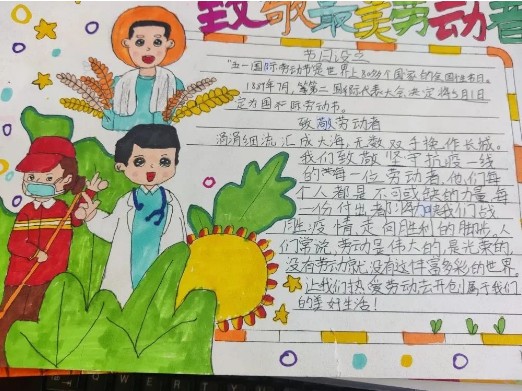 致敬最美劳动者
节日含义
"五一国际劳动节"是世界上80多个国家的全国性节日。
1889年7月,第二国际代表大会决定将5月1日
定为国际劳动节。
致敬劳动者
涓涓细流汇成大海,无数双手换作长城。
我们致敬坚守抗疫一线
的每一位劳动者,他们每
个人都是不可或缺的力量,每
一份付出都将助我们战
胜疫情,走向胜利的脚步,人
们常说,劳动是伟大的,是光荣的,
没有劳动就没有这件富多彩的世界。
让我们热爱劳动去开创属于我们
的美好生活!